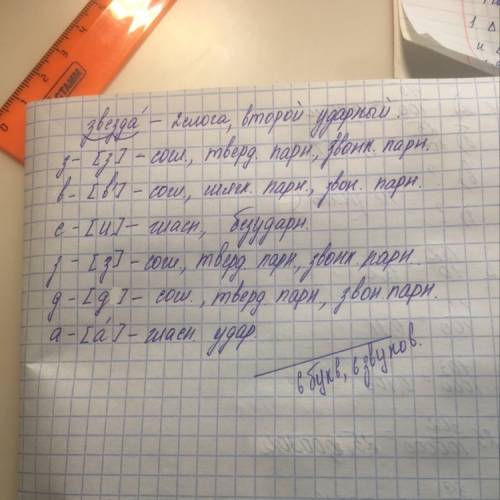 звезда́ – 2 слога, второй ударный.
з – [з] – сог., тверд. парн., звонк. парн.
в – [в'] – сог., мягк. парн., звон. парн.
е – [и] – гласн, безударн.
з – [з] – сог., тверд. парн., звонк. парн.
д – [д] – сог., тверд. парн, звон парн.
а – [а́] – гласн. удар.
6 букв, 6 звуков.